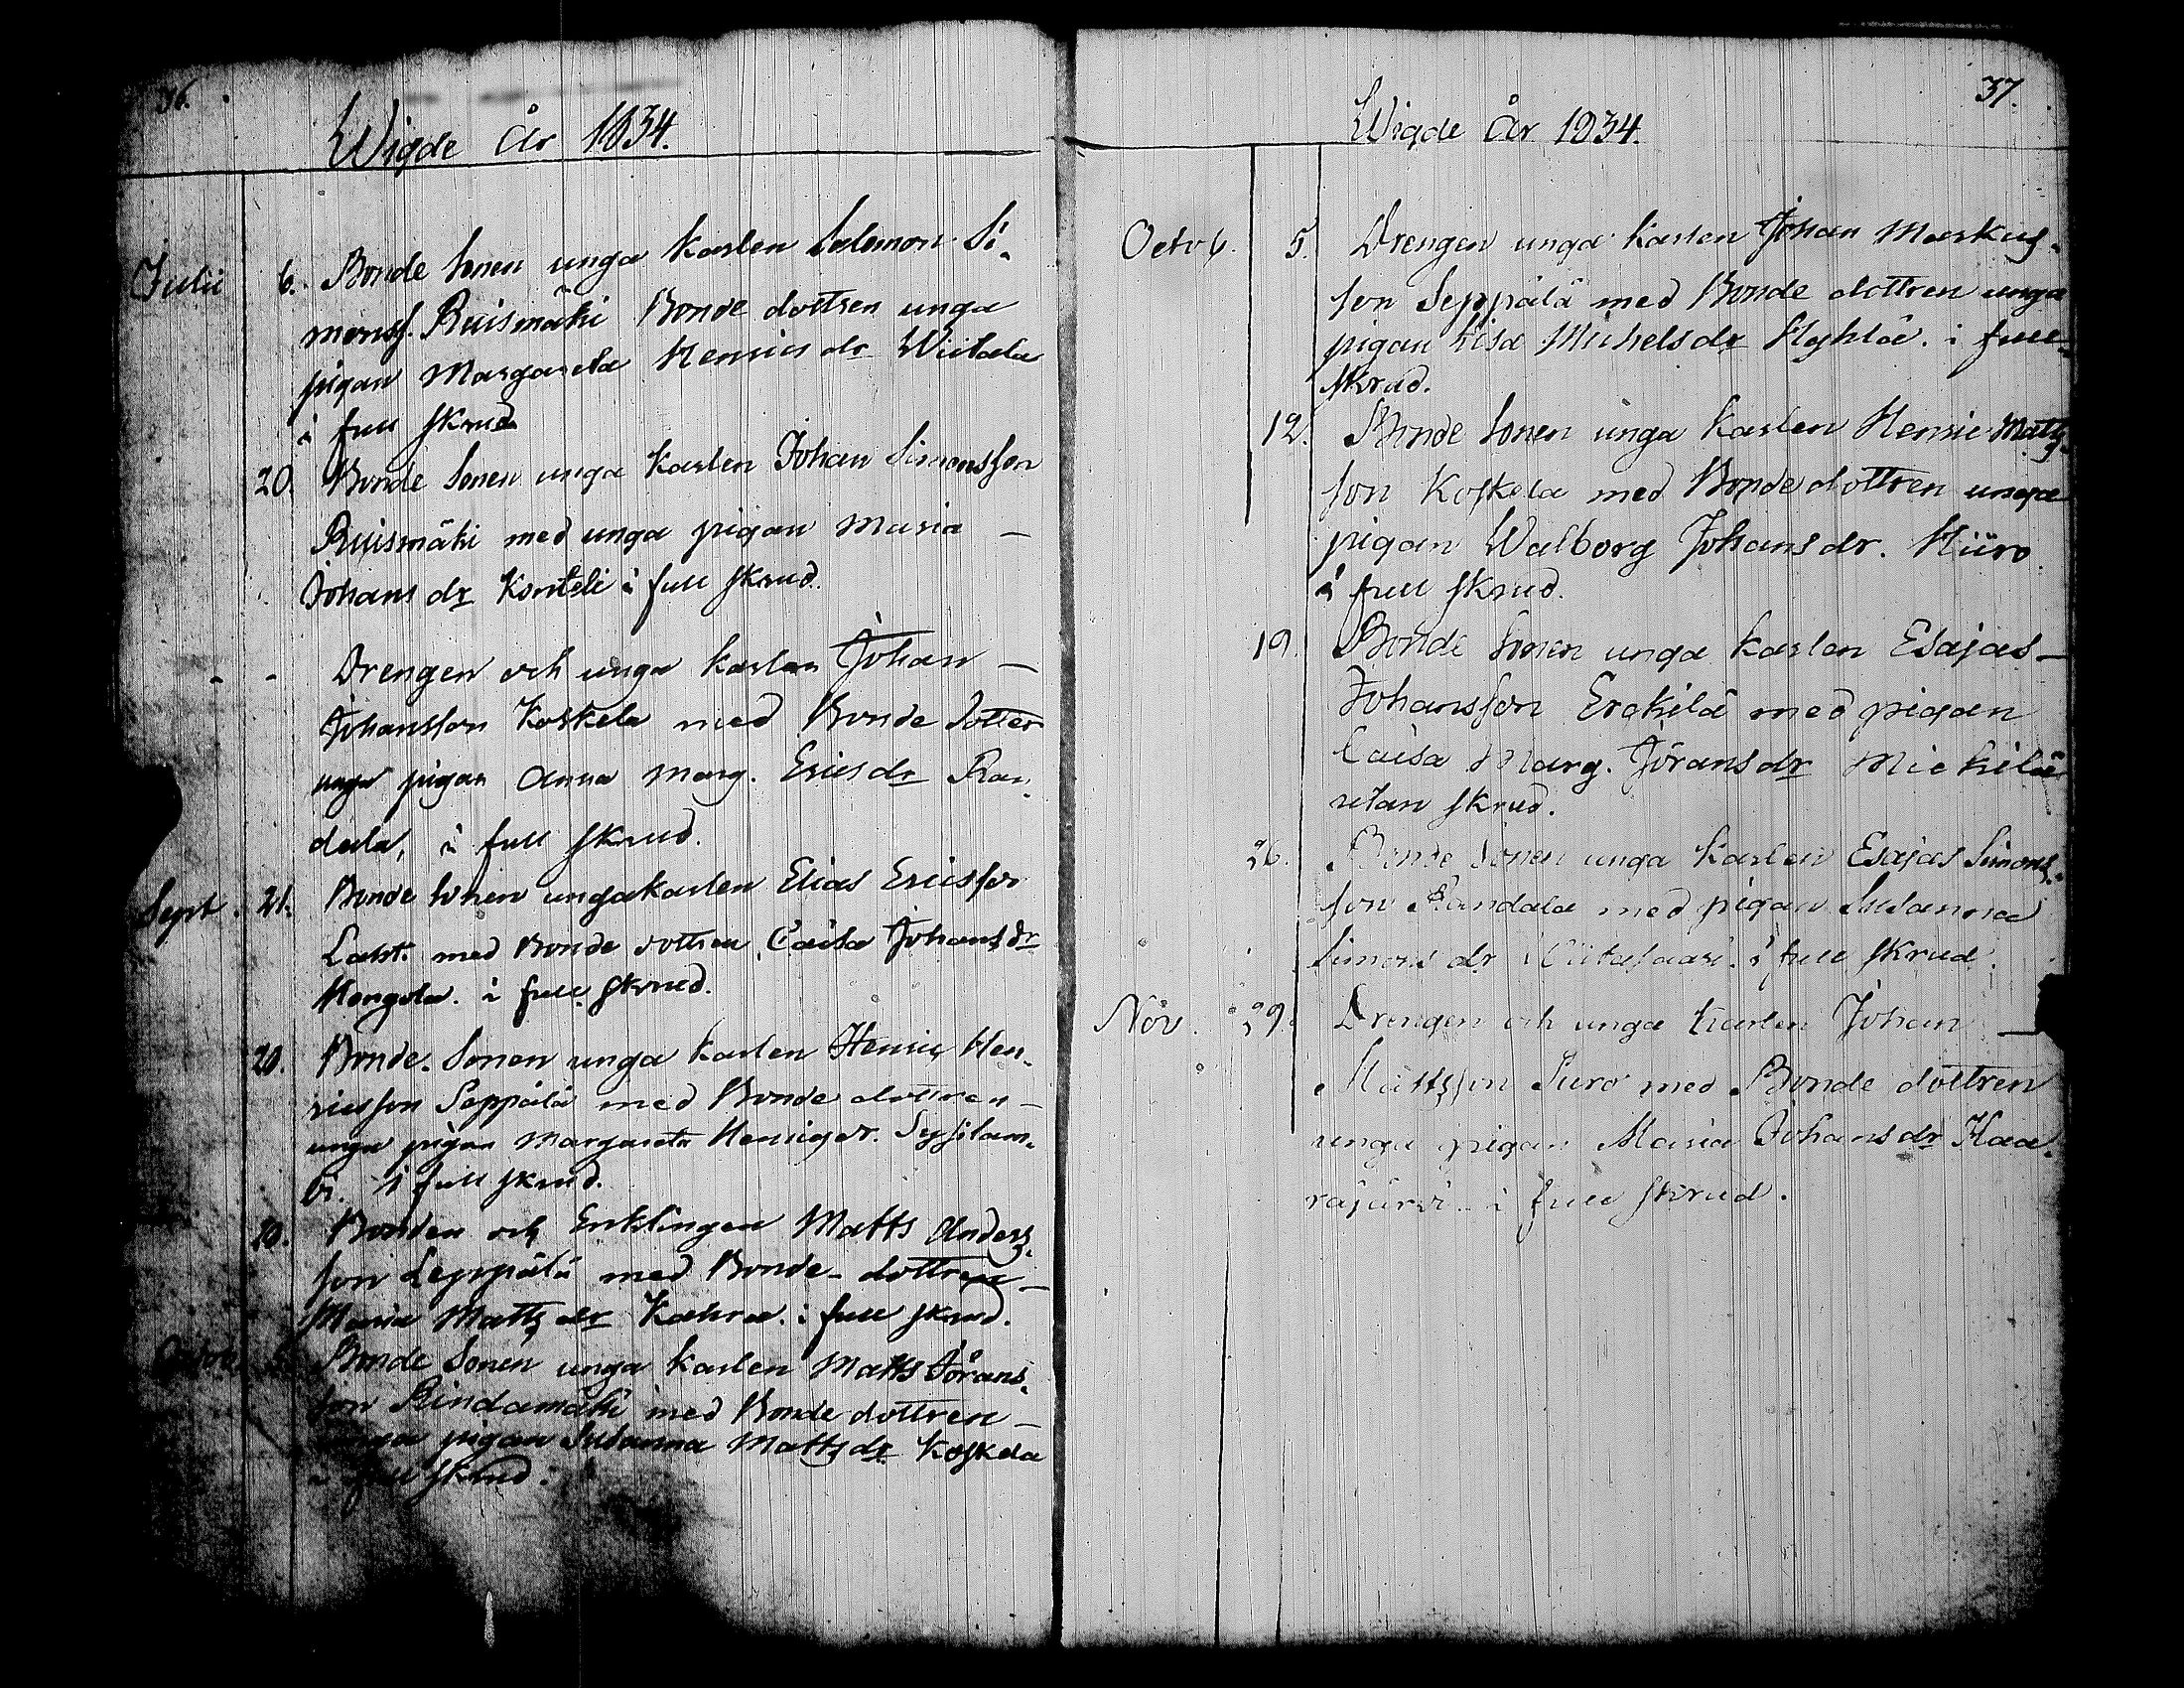 36.
Wigde År 1834.
Julii 6. Bonde Sonen unga Karlen Salomon Si-
monss. Ruismäki Bonde dottren unga
pigan Margareta Henricsdr Wiitala
i full skrud
20. Bonde Sonen unga Karlen Johan Simonsson
Ruismäki med unga pigan Maria –
Johansdr Konteli i full skrud.
- - Drengen och unga karlen Johan –
Johansson Koskela med Bonde dotter
unga pigan Anna Marg. Ericsdr Ran-
dala, i full skrud.
Sept. 21. Bonde Sonen ungakarlen Elias Ericsson
Laht. med Bonde dottren Caisa Johansdr
Hongola. i full skrud.
20. Bonde-Sonen unga karlen Henric Hen-
ricsson Seppälä med Bonde dottren –
unga pigan Margareta Henricsdr.
i full skrud.
Bonden och Enklingen Matts Anders-
son Leppälä med Bonde-dottren –
Maria Mattsdr Kahra. i full skrud.
Octob. 5. Bonde Sonen unga karlen Matts Jörans-
son Rindamäki med Bonde dottren –
unga pigan Susanna Mattsdr Koskela
i full skrud.
37.
Wigde År 1834.
Octob. 5. Drengen unga karlen Johan Markus-
son Seppälä med Bonde dottren unga
pigan Lisa Michelsdr Hyhlä. i full
skrud.
12. Bonde Sonen unga karlen Henric Matts-
son Koskela med Bondedottren unga
pigan Walborg Johansdr. Hiiro
i full skrud.
19. Bonde Sonen unga karlen Esajas –
Johansson Erckilä med pigan
Caisa Marg. Jöransdr Mickilä
utan skrud.
26. Bonde Sonen unga karlen Esajas Simons-
son Randala med pigan Susanna
Simonsdr Wiitasaari. i full skrud.
Nov. 29. Drengen och unga Karlen Johan –
Mattsson Luro med Bonde dottren
unga pigan Maria Johansdr Kaa-
rajärvi i full skrud.